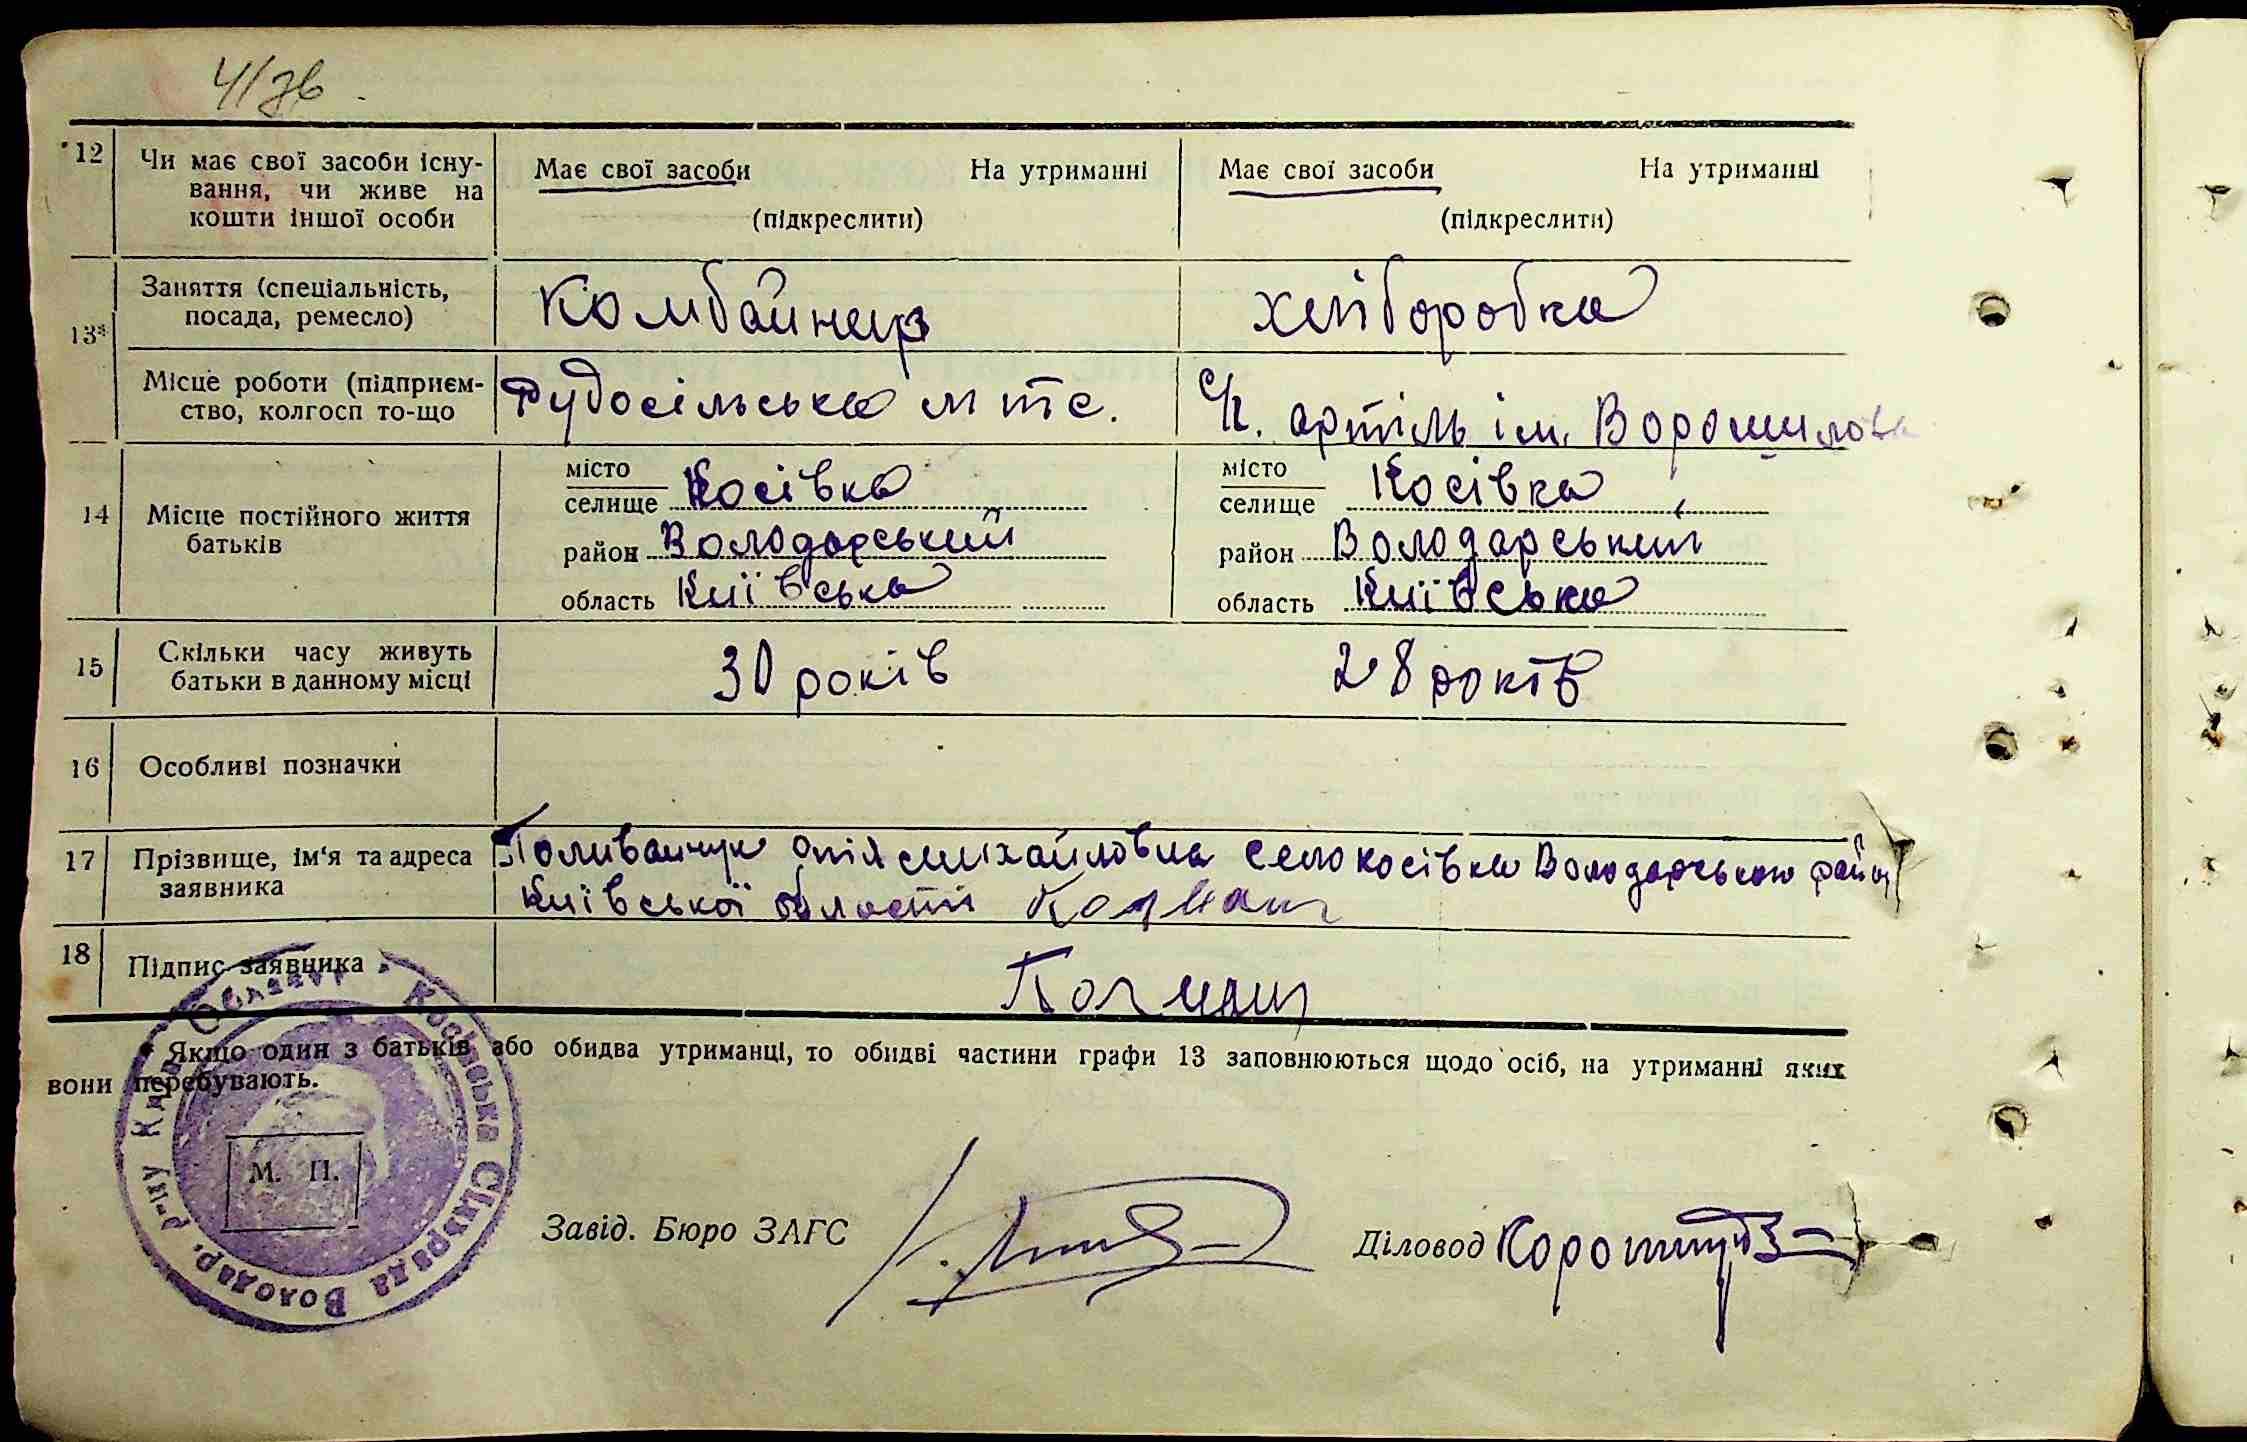 12 Чи має свої засоби існу-
вання, чи живе на
кошти іншої особи
Має свої засоби На утриманні
(підкреслити)
Має свої засоби На утриманні
(підкреслити)
13* Заняття (спеціальність,
посада, ремесло)
Комбайнер
хліборобка
Місце роботи (підприєм-
ство, колгосп то-що
Рудосільська мтс.
с/г. артіль ім. Ворошилова
14 Місце постійного життя
батьків
місто
селище Косівка
район Володарський
область Київська
місто
селище Косівка
район Володарський
область Київська
15 Скільки часу живуть
батьки в данному місці
30 років
28 років
16 Особливі позначки
17 Прізвище, ім'я та адреса
заявника
Поливанчук михайловна село косівка Володарського району
Київської області
18 Підпис заявника
* Якщо один з батьків або обидва утриманці, то обидві частини графи 13 заповнюються щодо осіб, на утриманні яких
вони перебувають.
Косівська Сільрада Володар. р-ну Київ Области
М. П.
Завід. Бюро ЗАГС
Діловод